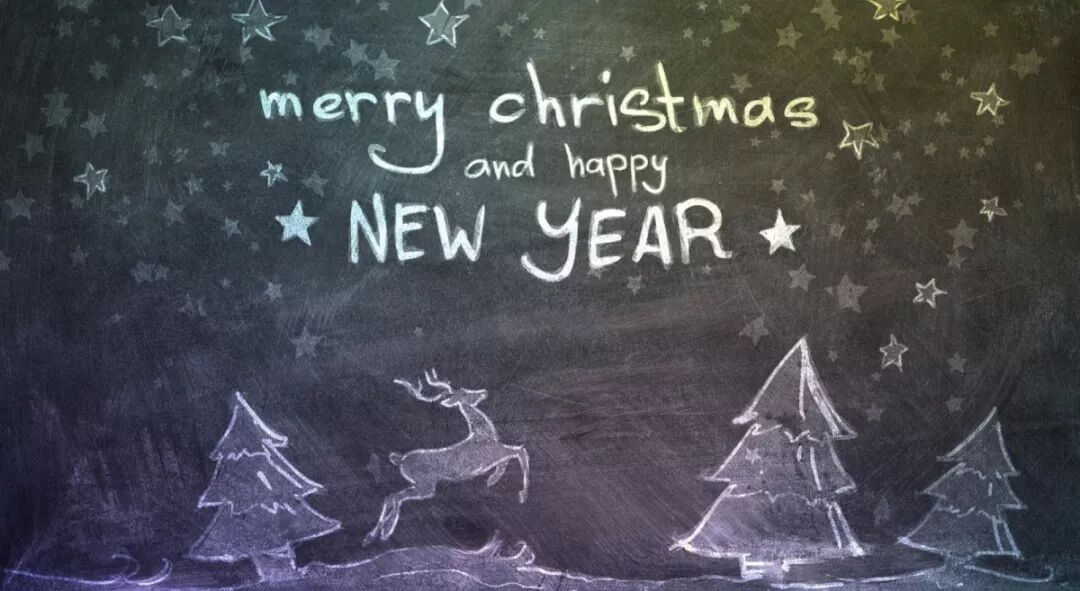 merry christmas
and happy
NEW YEAR